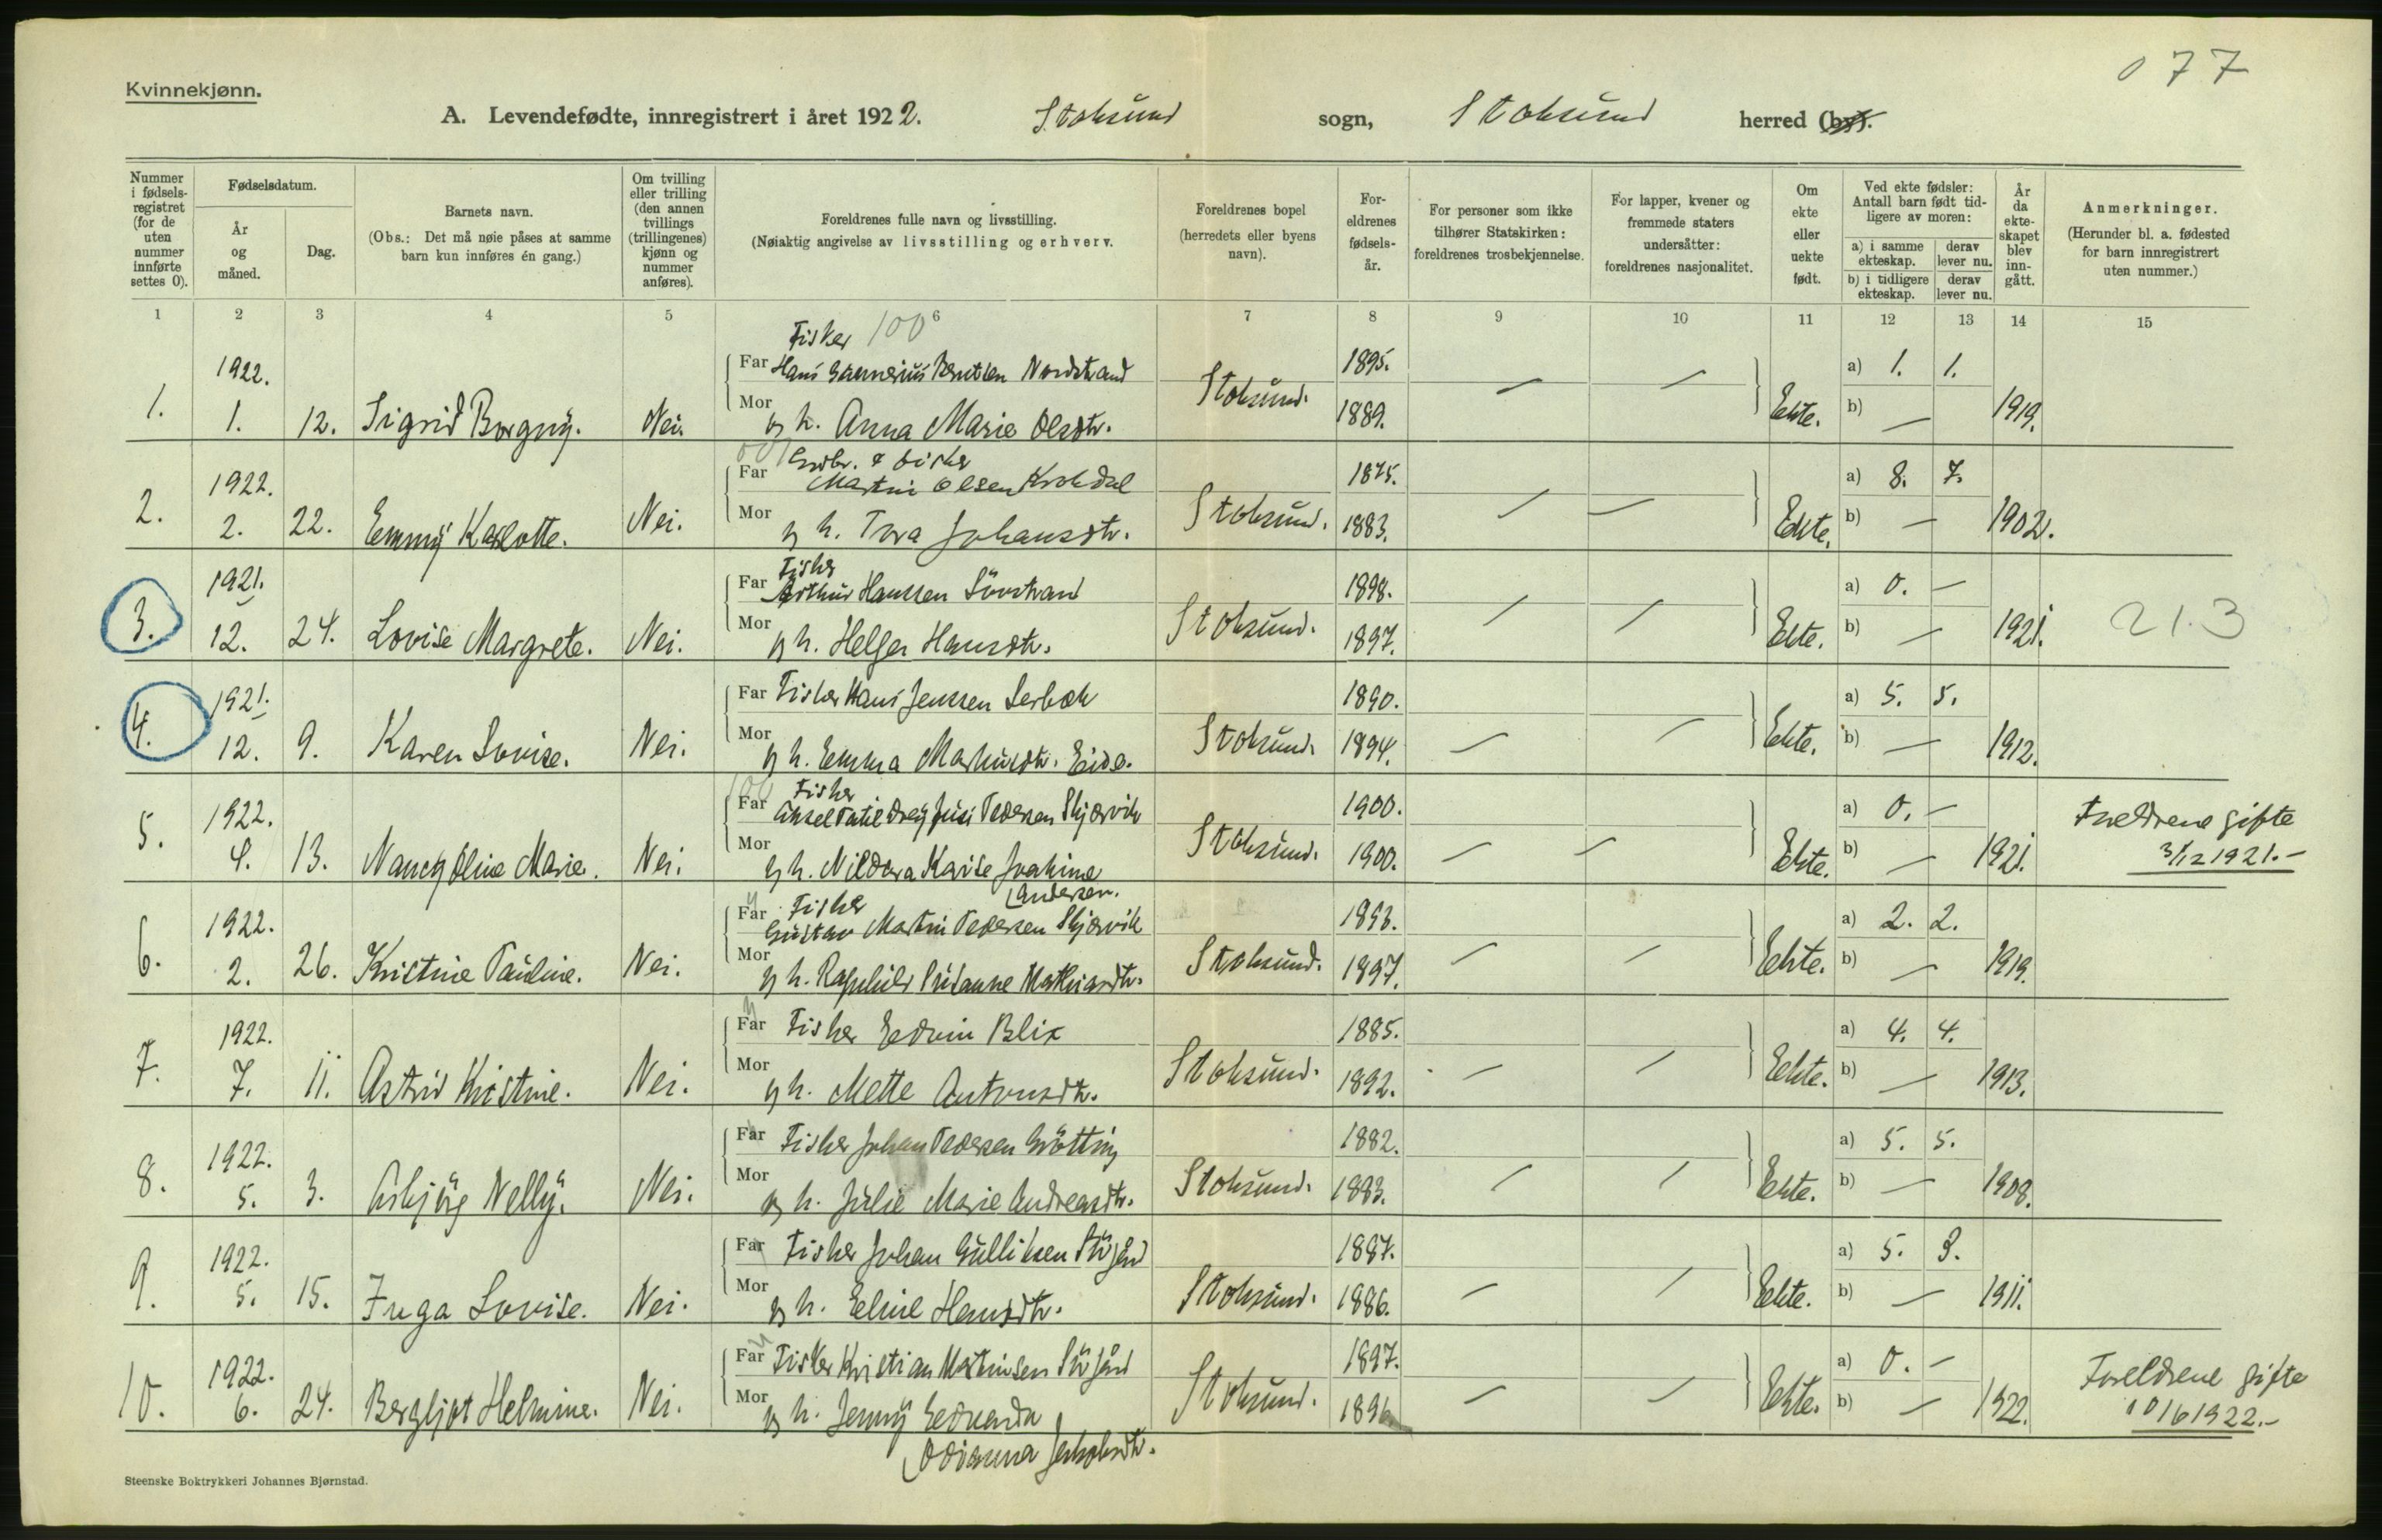 077
Kvinnekjønn.
A. Levendefødte, innregistrert i året 1922. Stoksund sogn, Stoksund herred (by).
Nummer i fødsels-registret (for de uten nummer innførte settes 0).
Fødselsdatum.
År og måned.
Dag.
Barnets navn.
(Obs.: Det må nøie påses at samme barn kun innføres én gang.)
Om tvilling eller trilling (den annen tvillings (trillingenes) kjønn og nummer anføres).
Foreldrenes fulle navn og livsstilling.
(Nøiaktig angivelse av livsstilling og erhverv.
Foreldrenes bopel (herredets eller byens navn).
For-eldrenes fødsels-år.
For personer som ikke tilhører Statskirken: foreldrenes trosbekjennelse.
For lapper, kvener og fremmede staters undersåtter: foreldrenes nasjonalitet.
Om ekte eller uekte født.
Ved ekte fødsler: Antall barn født tid-ligere av moren:
a) i samme ekteskap.
derav lever nu.
b) i tidligere ekteskap.
derav lever nu.
År da ekte-skapet blev inn-gått.
Anmerkninger.
(Herunder bl. a. fødested for barn innregistrert uten nummer.)
1 2 3 4 5 6 7 8 9 10 11 12 13 14 15
Fisker 100
1922. Far Hans Bentsen Nordstrand 1895. a) 1. 1.
1. 1. 12. Sigrid Borgny. Nei. Mor og h. Anna Marie Olsdtr. Stoksund. 1889. Ekte. b) — 1919.
Grdbr. & fisker
1922. Far Martin Olsen Krokdal 1875. a) 8. 7.
2. 2. 22. Emmy Karlotte. Nei. Mor og h. Tora Johansdtr. Stoksund. 1883. Ekte. b) — 1902.
Fisker
1921. Far Arthur Hanssen Sörstrand 1898. a) 0. —
3. 12. 24. Lovise Margrete. Nei. Mor og h. Helga Hansdtr. Stoksund. 1897. Ekte. b) — 1921. 21.3
1921. Far Fisker Hans Jenssen 1890. a) 5. 5.
4. 12. 9. Karen Lovise. Nei. Mor og h. Emma Eide. Stoksund. 1894. Ekte. b) — 1912.
100 Fisker
1922. Far Aksel Pedersen Skjærvik 1900. a) 0. — Foreldrene gifte
5. 4. 13. Nancy Oline Marie. Nei. Mor og h. Joakime Stoksund. 1900. Ekte. b) — 1921. 3/12 1921.—
Andersen.
Fisker
1922. Far Gustav Martin Pedersen Skjærvik 1893. a) 2. 2.
6. 2. 26. Kristine Pauline. Nei. Mor og h. Ragnhild Susanne Stoksund. 1897. Ekte. b) — 1919.
1922. Far Fisker Edvin Blix 1885. a) 4. 4.
7. 7. 11. Astrid Kristine. Nei. Mor og h. Mette Antonsdtr. Stoksund. 1892. Ekte. b) — 1913.
1922. Far Fisker Johan Pedersen Grötting 1882. a) 5. 5.
8. 5. 3. Asbjörg Nelly. Nei. Mor og h. Julie Marie Andreasdtr. Stoksund. 1883. Ekte. b) — 1908.
1922. Far Fisker Johan Gulliksen 1887. a) 5. 3.
9. 5. 15. Inga Lovise. Nei. Mor og h. Eline Hansdtr. Stoksund. 1886. Ekte. b) — 1911.
1922. Far Fisker Kristian Martinsen 1897. a) 0. — Foreldrene gifte
10. 6. 24. Bergljot Helmine. Nei. Mor og h. Jenny Edvarda Stoksund. 1896 Ekte. b) — 1922. 10/6 1922.—
Odianna Jakobsdtr.
Steenske Boktrykkeri Johannes Bjørnstad.